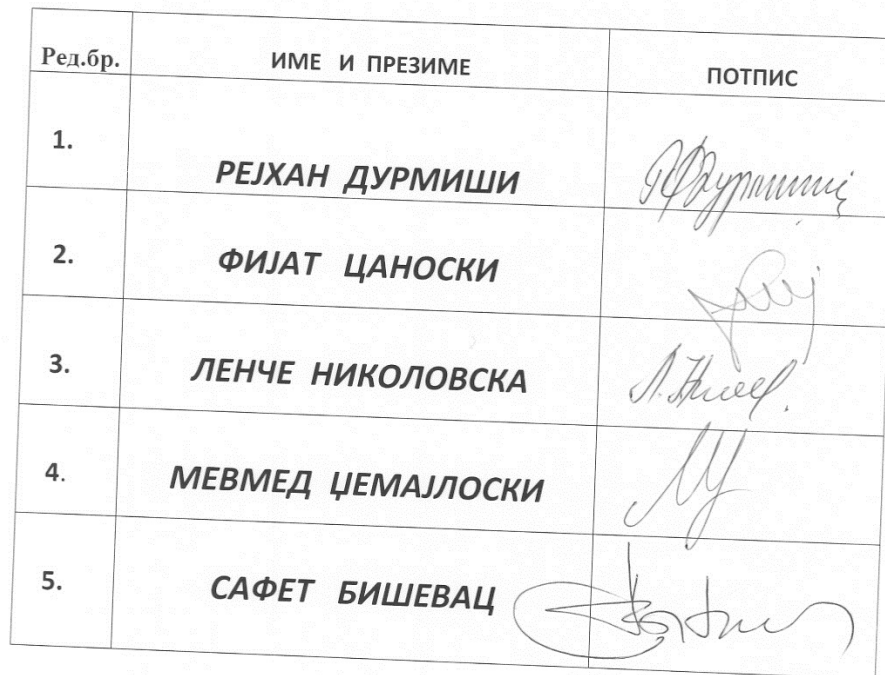 Ред.бр. ИМЕ И ПРЕЗИМЕ ПОТПИС
1. РЕЈХАН ДУРМИШИ
2. ФИЈАТ ЦАНОСКИ
3. ЛЕНЧЕ НИКОЛОВСКА
4. МЕВМЕД ЏЕМАЈЛОСКИ
5. САФЕТ БИШЕВАЦ